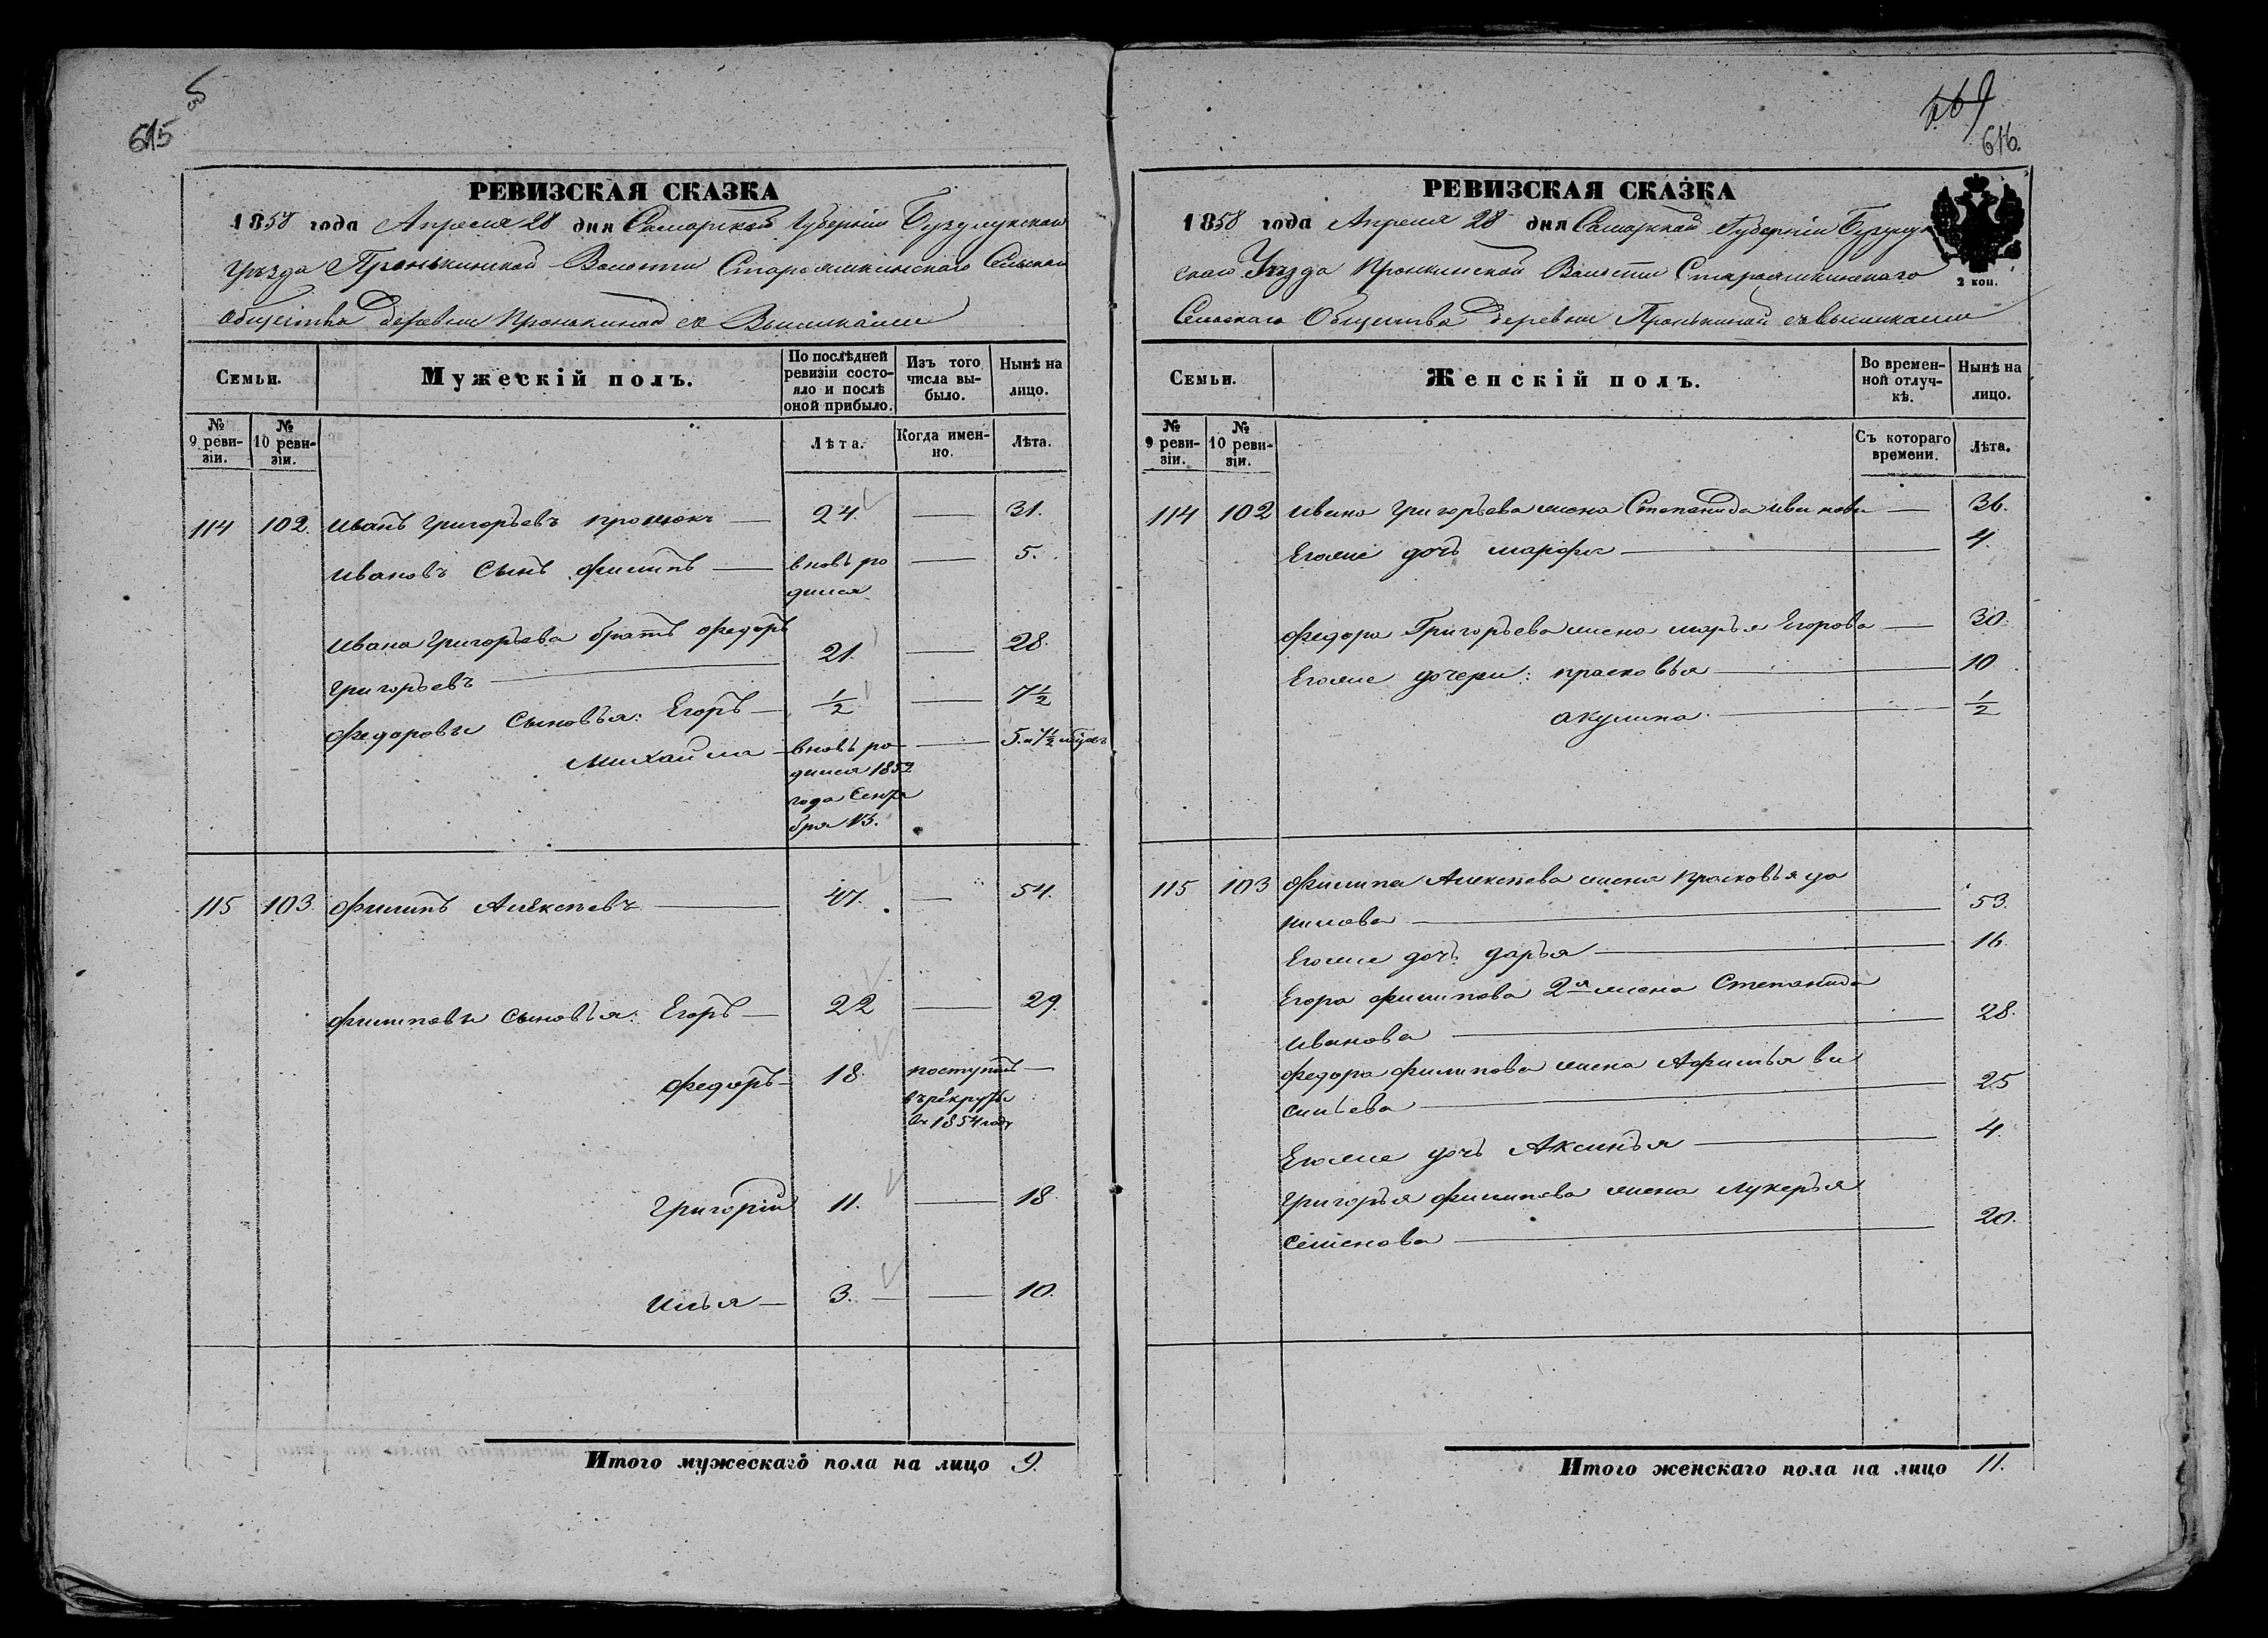 5
615
РЕВИЗСКАЯ СКАЗКА
1858 года Апреля 28 дня Самарской Губерніи Бузулукскаго
Уѣзда Пронькинской Волости Староякшинскаго Сельскаго
Общества деревни Пронькиной съ Выселками
Семьи.
Мужескій полъ.
По послѣдней ревизіи состояло и послѣ оной прибыло.
Изъ того числа выбыло.
Нынѣ на лицо.
№ 9 ревизіи.
№ 10 ревизіи.
Лѣта.
Когда именно.
Лѣта.
114 102. Иванъ Григорьевъ 24. — 31.
Ивановъ Сынъ Филипъ — вновь ро — 5.
дился
Ивана Григорьева братъ Федоръ
Григорьевъ — 21. — 28.
Федоровы Сыновья: Егоръ — ½ — 7½
Михайла — вновь ро —
дился 1852
года Сентя
бря 13.
115 103. Филипъ Алексѣевъ — 47. — 54.
Филиповы сыновья: Егоръ — 22 — 29.
Федоръ — 18. поступилъ —
въ рекруты
въ 1854 году
Григорій 11. — 18.
Илья — 3. — — 10.
Итого мужескаго пола на лицо 9.
616.
РЕВИЗСКАЯ СКАЗКА
2 коп.
1858 года Апреля 28 дня Самарской Губерніи Бузулук
скаго Уѣзда Пронкинской Волости Староякшинскаго
Сельскаго Общества деревни Пронькиной съ выселками
Семьи.
Женскій полъ.
Во временной отлучкѣ.
Нынѣ на лицо.
№ 9 ревизіи.
№ 10 ревизіи.
Съ котораго времени.
Лѣта.
114 102 Ивана Григорьева жена Степанида Иванова — 36.
Егоже дочь марфа — 4.
Федора Григорьева жена марья Егорова — 30.
Егоже дочери: прасковья — 10
акулина — ½
115 103 Филипа Алексѣева жена прасковья да
нилова — 53.
Егоже дочь дарья — 16.
Егора филипова 2я жена Степанида
Иванова — 28.
Федора филипова жена Афимья ва
сильева — 25
Егоже дочь Аксинья — 4.
Григорья филипова жена лукерья
семенова — 20.
Итого женскаго пола на лицо 11.